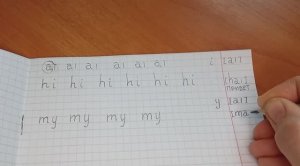 ai ai ai ai ai ai i [ai]
hi hi hi hi hi hi [hai]
привет
y [ai]
my my my my [ma